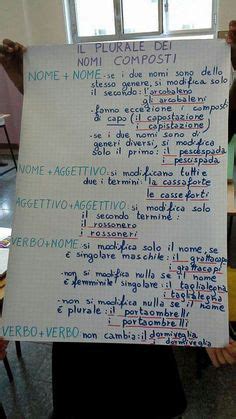 IL PLURALE DEI
NOMI COMPOSTI
NOME + NOME - se i due nomi sono dello
stesso genere, si modifica solo
il secondo: l'arcobaleno
gli arcobaleni
- fanno eccezione i composti
di capo (il capostazione
i capistazione)
- se i due nomi sono di
generi diversi, si modifica
solo il primo: il pescespada
i pescispada
NOME + AGGETTIVO: si modificano tutti e
due i termini: la cassaforte
le casseforti
AGGETTIVO + AGGETTIVO: si modifica solo
il secondo termine:
il rossonero
i rossoneri
VERBO + NOME: si modifica solo il nome, se
è singolare maschile: il grattacapo
i grattacapi
- non si modifica nulla se il nome
è femminile singolare: il taglialegna
i taglialegna
- non si modifica nulla se il nome
è plurale: il portaombrelli
i portaombrelli
VERBO + VERBO: non cambia: il dormiveglia
i dormiveglia